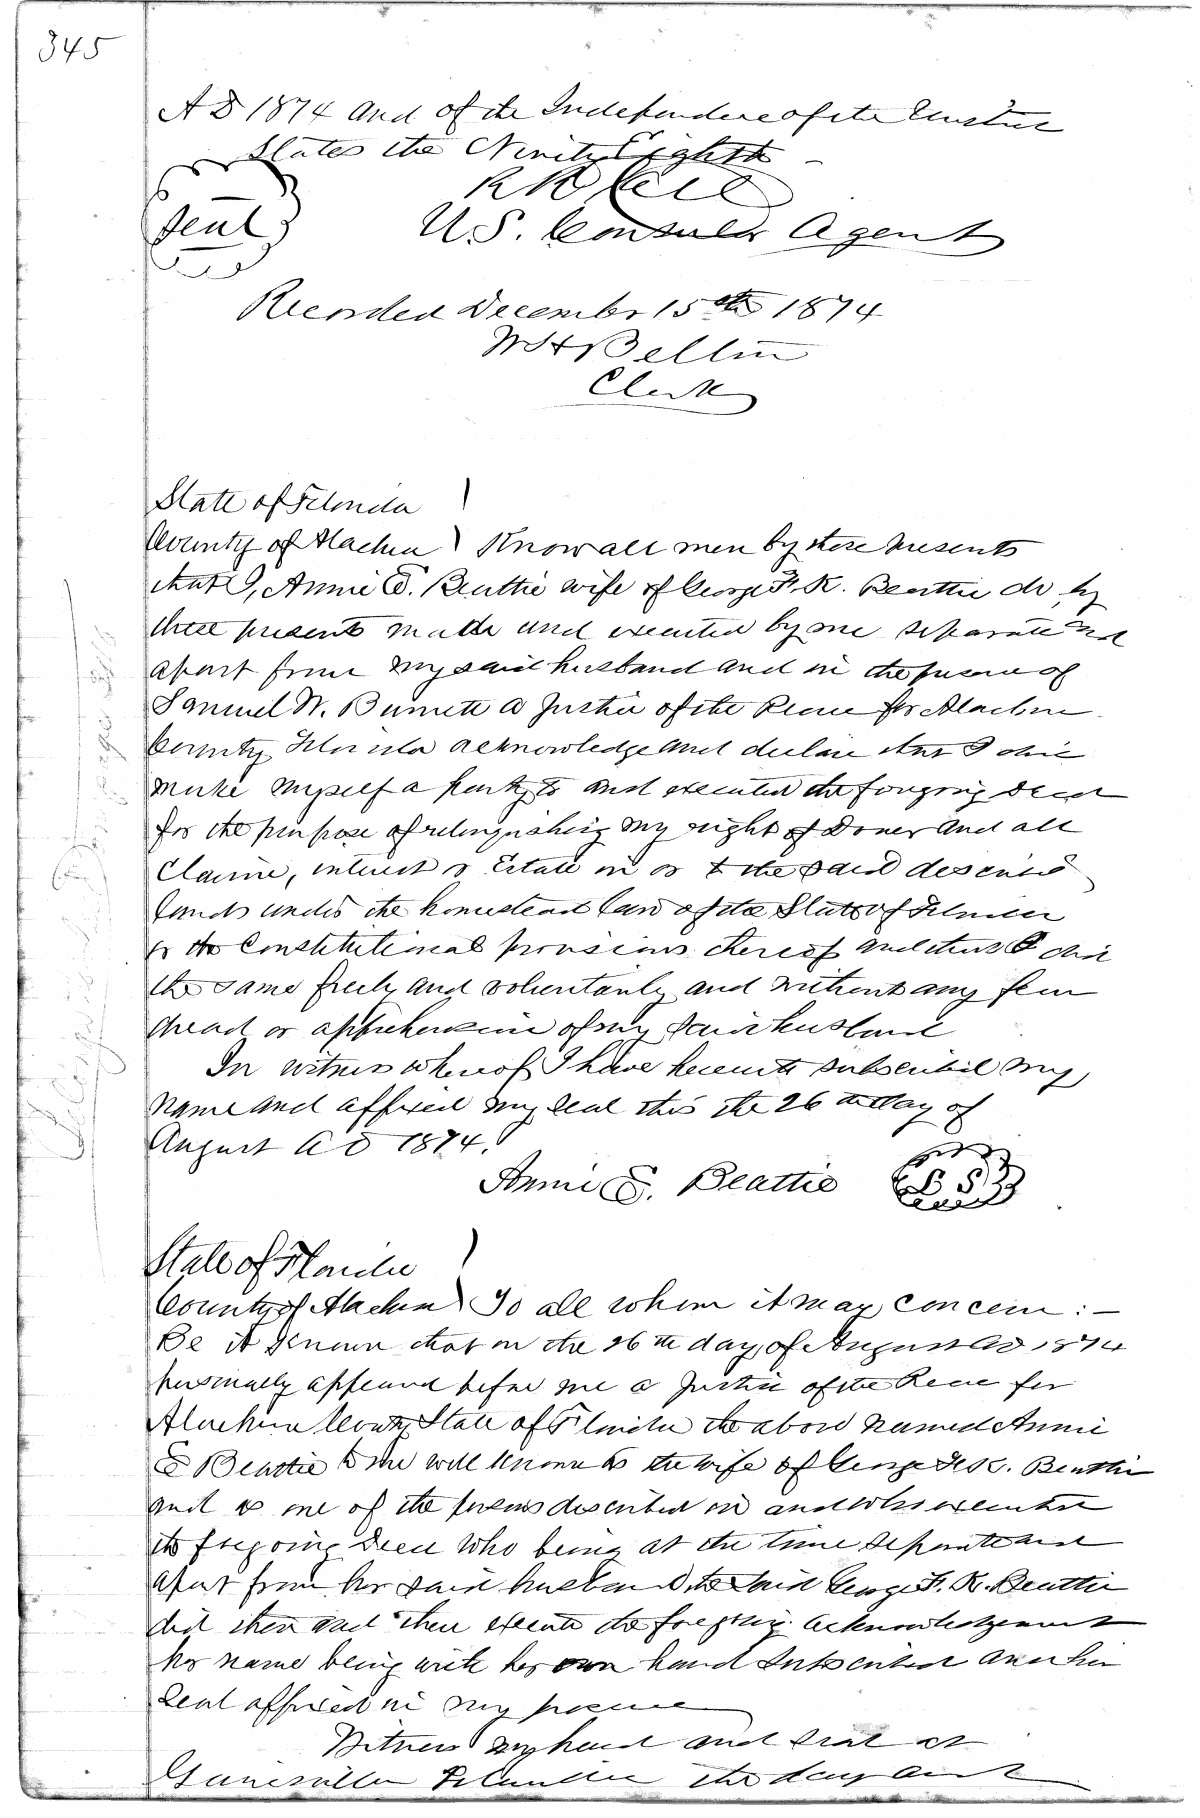 345
A D 1874 and of the Independence of the United
States the Ninety Eighth
Seal
U.S. Consular Agent
Recorded December 15th 1874
Clerk
State of Florida
County of Alachua Know all men by these presents
that I, Annie E. Beattie wife of George F. K. Beattie do, by
these presents made and executed by me separate and
apart from my said husband and in the presence of
Samuel W. Burnett a Justice of the Peace for Alachua
County Florida acknowledge and declare that I did
make myself a party to and executed the foregoing Deed
for the purpose of relinquishing my right of Dower and all
Claim, interest or Estate in or to the said described
lands under the homestead law of the State of Florida
or the Constitutional provisions thereof and that I did
the same freely and voluntarily and without any fear
dread or apprehension of my said husband
In witness whereof I have hereunto subscribed my
name and affixed my seal this the 26th day of
August A D 1874.
Annie E. Beattie L S
State of Florida
County of Alachua To all whom it may concern :—
Be it known that on the 26th day of August AD 1874
personally appeared before me a Justice of the Peace for
Alachua County State of Florida the above named Annie
E Beattie to me well known as the wife of George F. K. Beattie
and as one of the persons described in and who executed
the foregoing Deed who being at the time separate and
apart from her said husband the said George F. K. Beattie
did then and there execute the foregoing acknowledgement
her name being with her own hand subscribed and her
seal affixed in my presence
Witness my hand and seal at
Gainesville Florida the day and